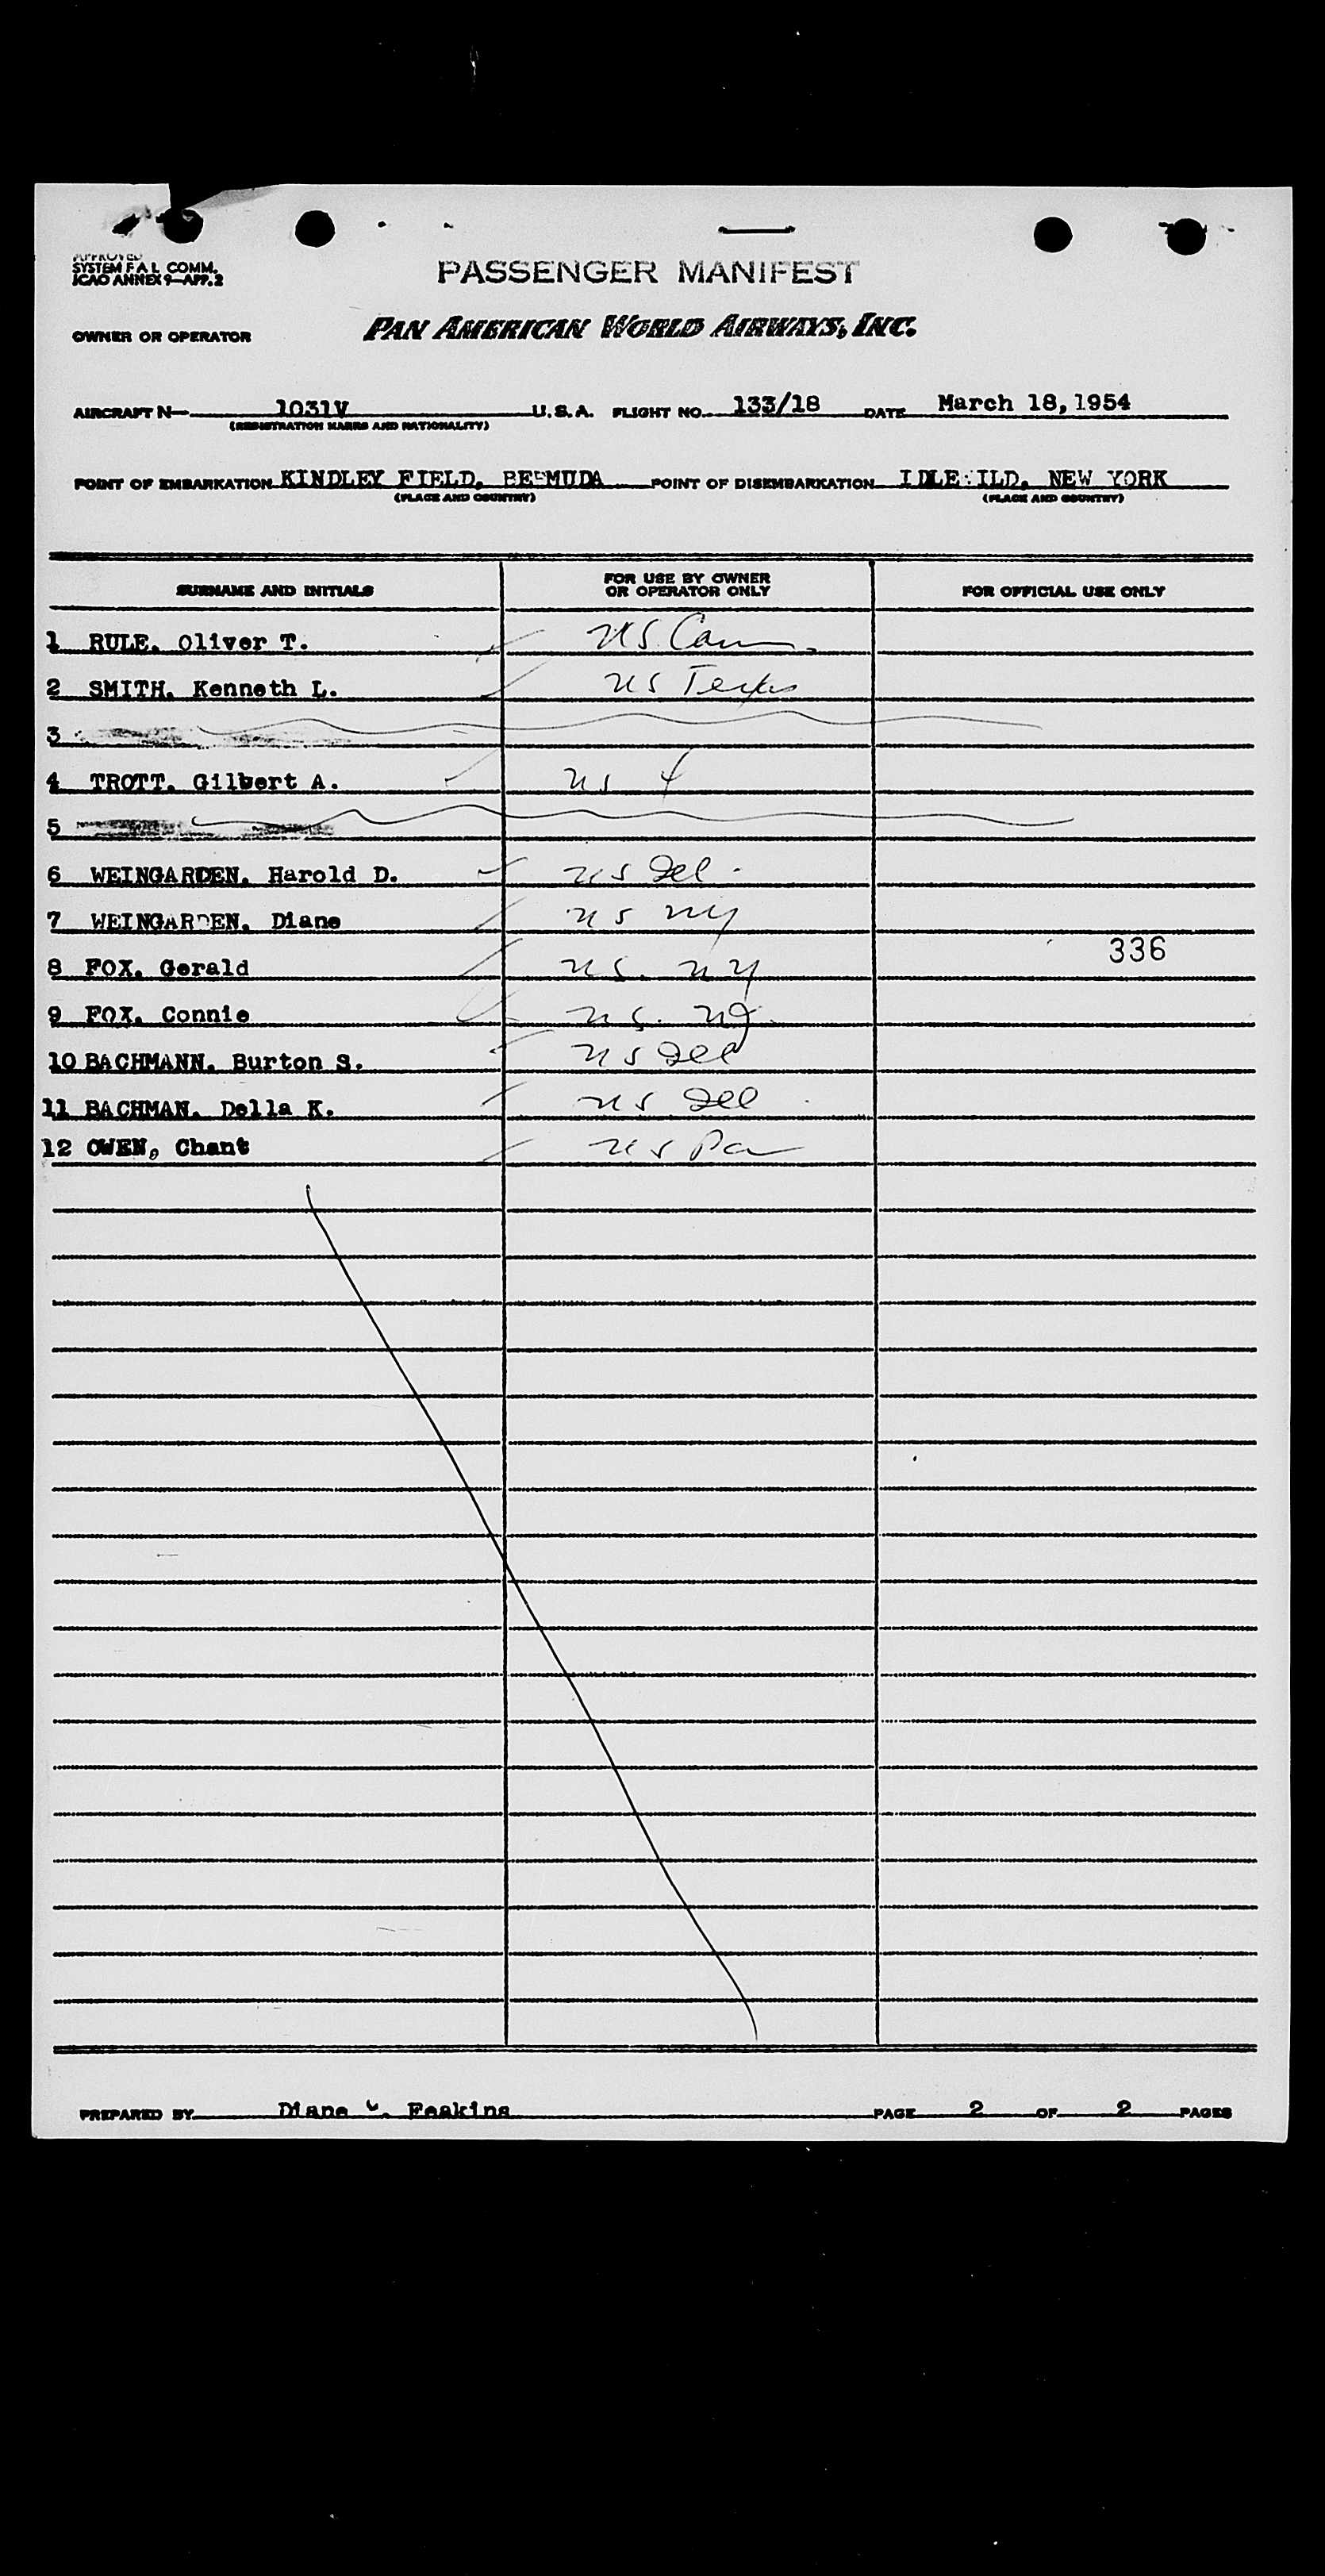 APPROVED
SYSTEM F A L COMM.
ICAO ANNEX 9—APP. 2
PASSENGER MANIFEST
OWNER OR OPERATOR PAN AMERICAN WORLD AIRWAYS, INC.
AIRCRAFT N— 1031V U.S.A. FLIGHT NO. 133/18 DATE March 18, 1954
(REGISTRATION MARKS AND NATIONALITY)
POINT OF EMBARKATION KINDLEY FIELD, BERMUDA POINT OF DISEMBARKATION IDLEWILD, NEW YORK
(PLACE AND COUNTRY) (PLACE AND COUNTRY)
SURNAME AND INITIALS FOR USE BY OWNER OR OPERATOR ONLY FOR OFFICIAL USE ONLY
1 RULE, Oliver T. US
2 SMITH, Kenneth L. US
3
4 TROTT, Gilbert A. US
5
6 WEINGARDEN, Harold D. US Del
7 WEINGARDEN, Diane US NY
8 FOX, Gerald US. NY 336
9 FOX, Connie US. NJ.
10 BACHMANN, Burton S. US Del
11 BACHMAN, Della K. US Del
12 OWEN, Chant US Pa
PREPARED BY Diane Feakins PAGE 2 OF 2 PAGES